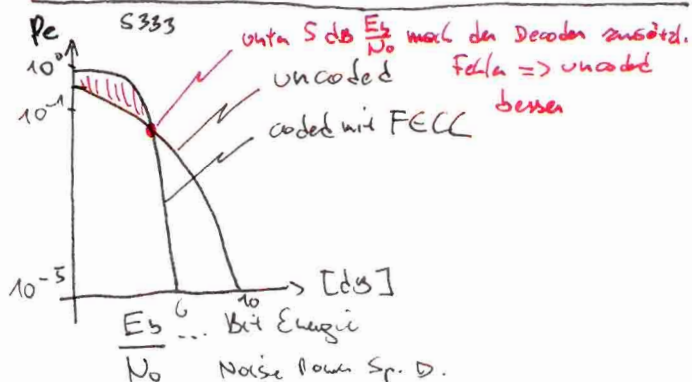 Pe S333
unter 5 dB Eb/No mach der Decoder zusätzl.
Fehler => uncoded
besser
10⁰
uncoded
10⁻¹
coded mit FECC
10⁻⁵
6 10 [dB]
Eb/No ... Bit Energie
Noise Power Sp. D.